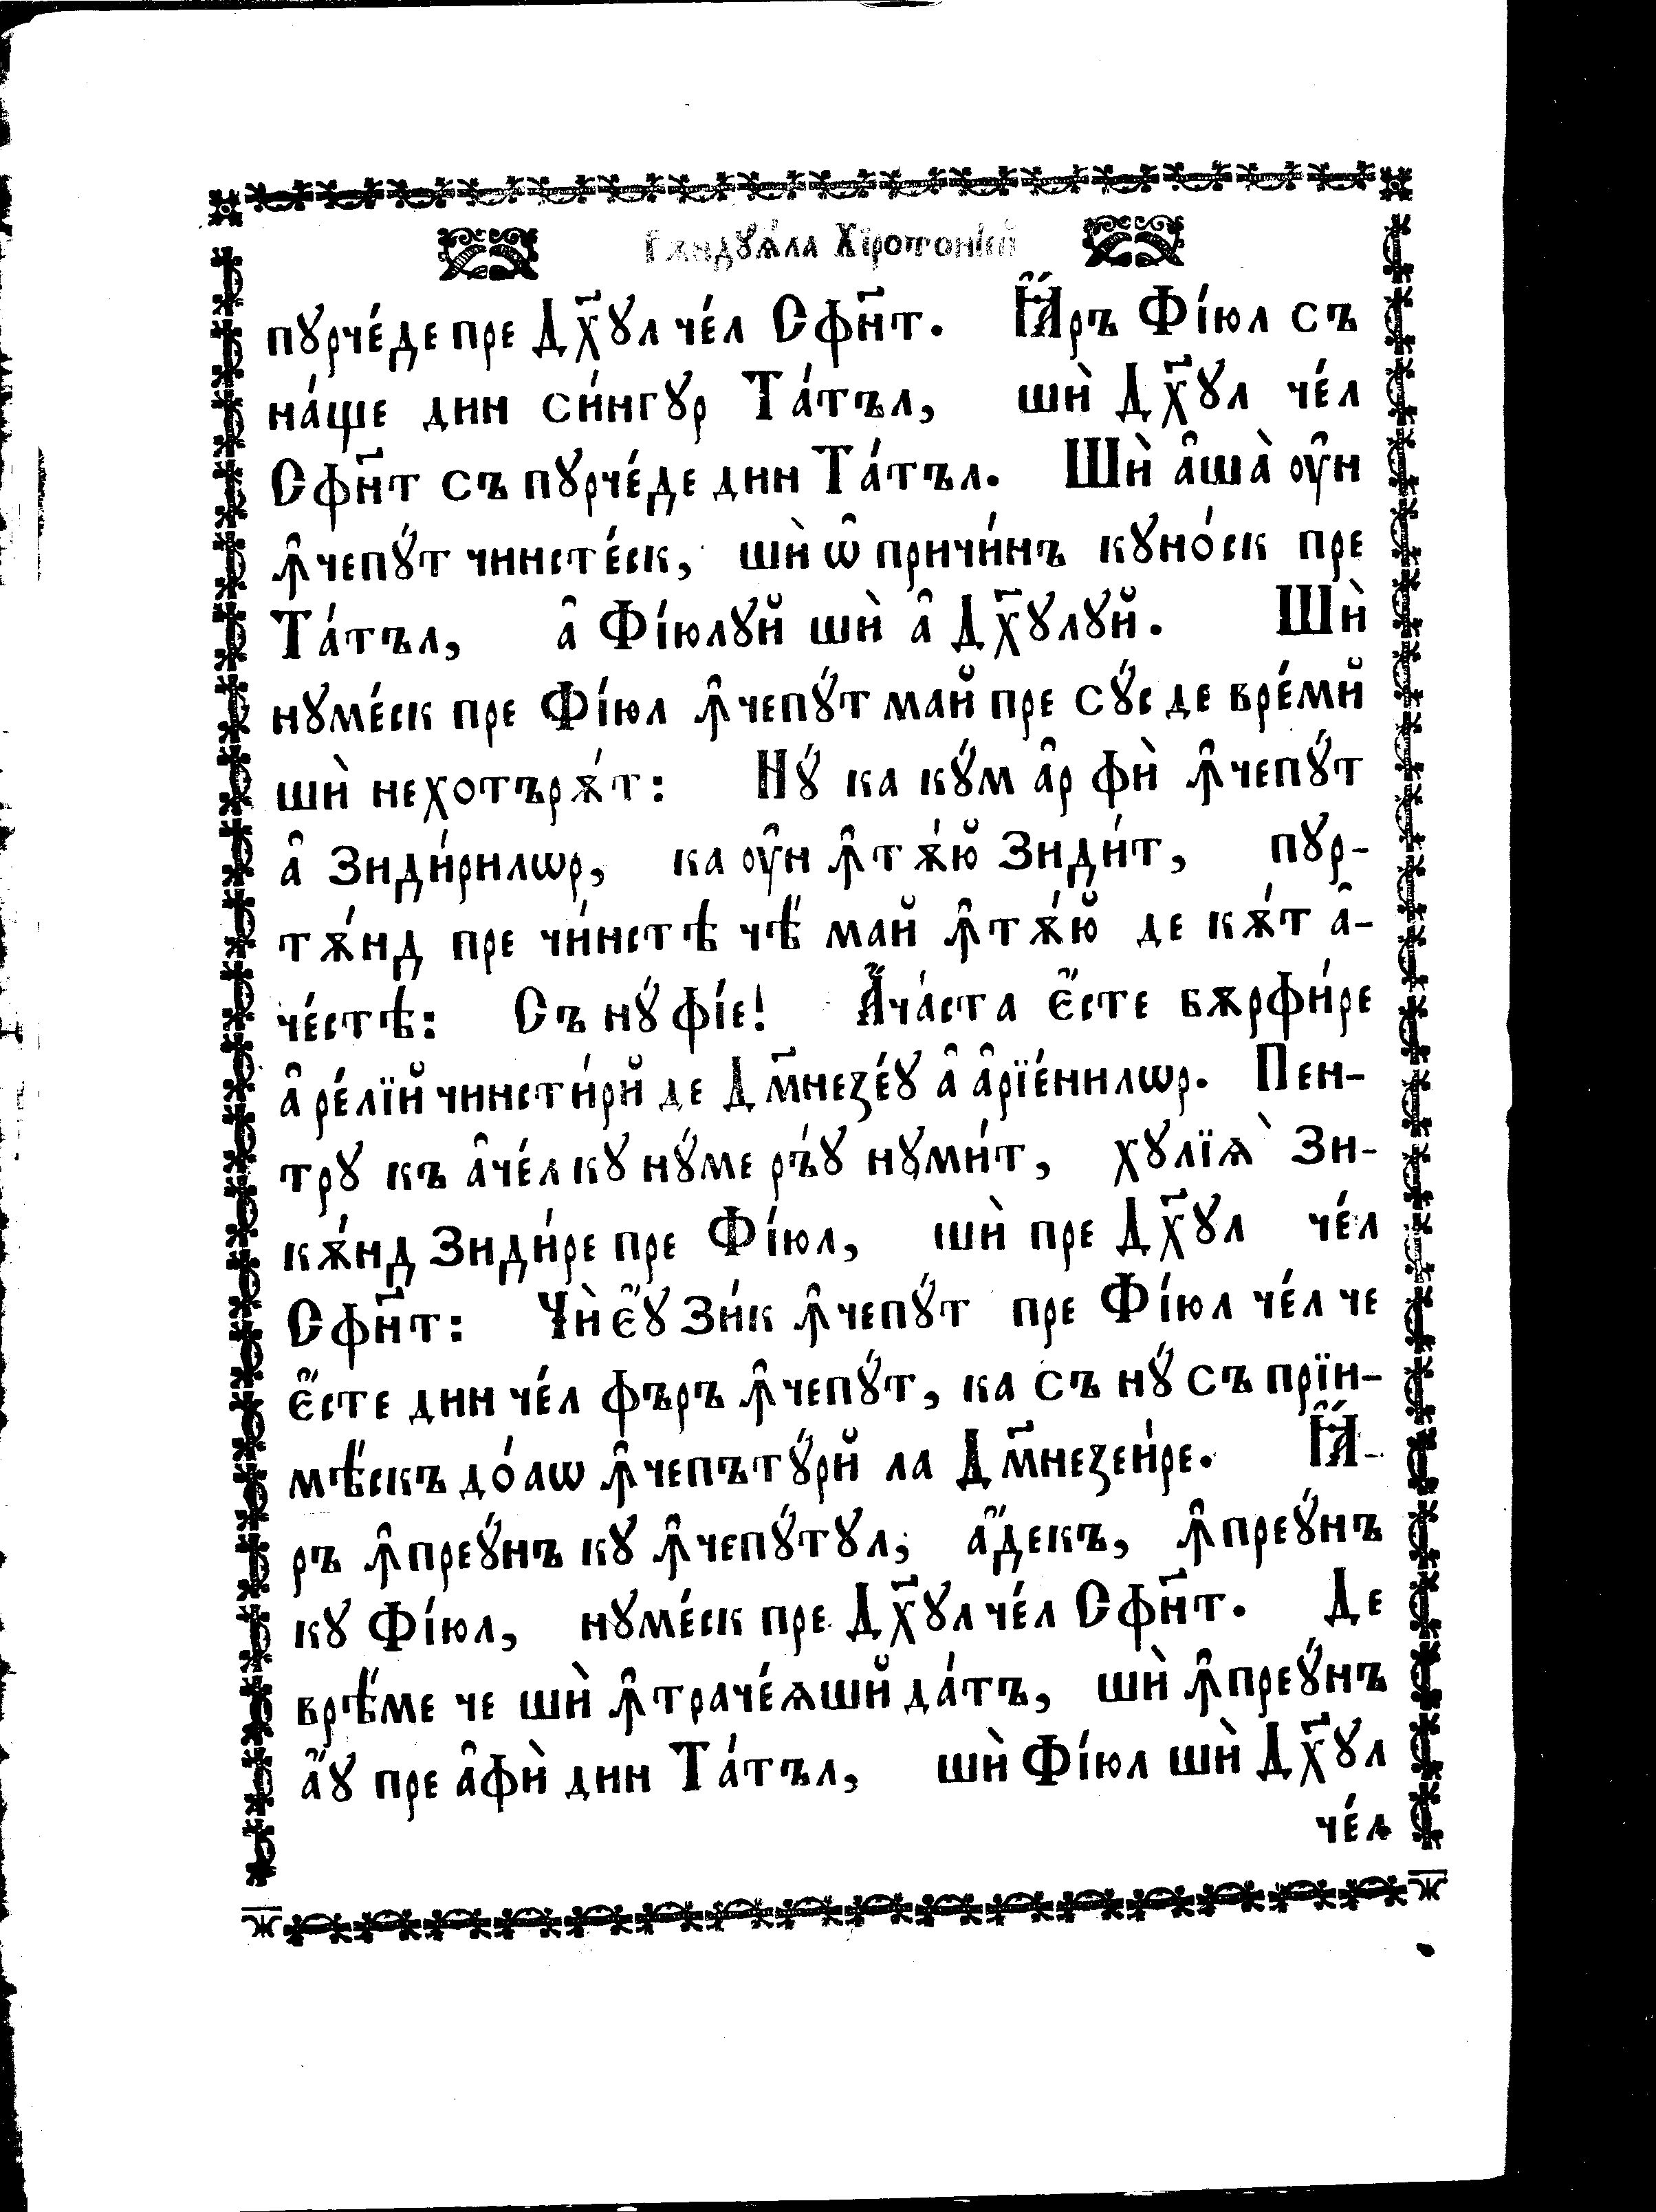 Рѫндꙋѧ́ла Хїротонїей
пꙋрче́де пре Дх҃ꙋл че́л Сфн҃т. І҆А҆́ръ Фі́юл съ
на́ще дин си́нгꙋр Та́тъл, шѝ Дх҃ꙋл че́л
Сфн҃т съ пꙋрче́де дин Та́тъл. Шѝ а҆ша̀ ѹ҆н
ꙟ҆чепꙋ́т чинсте́ск, шѝ ѡ҆ причи́нъ кꙋно́ск пре
Та́тъл, а҆ Фі́юлꙋй шѝ а҆ Дх҃ꙋлꙋй. Шѝ
нꙋме́ск пре Фі́юл ꙟ҆чепꙋ́т май пре сꙋ́с де вре́мй
шѝ нехотърѫ́т: Нꙋ́ ка кꙋ́м а҆р фѝ ꙟ҆чепꙋ́т
а҆ Зиди́рилѡр, ка ѹ҆н ꙟ҆тѫ́ю Зиди́т, пꙋр-
тѫ́нд пре чи́нстѣ чѣ́ май ꙟ҆тѫ́ю де кѫ́т а҆-
че́стѣ: Съ нꙋ́ фі́е! А҆ча́ста є҆́сте бѫрфи́ре
а҆ ре́лїй чинсти́рй де Дм҃незе́ꙋ а҆ а҆рїе́нилѡр. Пен-
трꙋ къ а҆че́л кꙋ нꙋ́ме ръ́ꙋ нꙋми́т, хꙋлїѧ̀ Зи-
кѫ́нд Зиди́ре пре Фі́юл, шѝ пре Дх҃ꙋл че́л
Сфн҃т: Чѝ є҆́ꙋ Зи́к ꙟ҆чепꙋ́т пре Фі́юл че́л че
є҆́сте дин че́л фъръ ꙟ҆чепꙋ́т, ка съ нꙋ́ съ прїи-
мѣ́скъ до́аѡ ꙟ҆чепътꙋ́рй ла Дм҃незеи́ре. І҆А҆́-
ръ ꙟ҆преꙋ́нъ кꙋ ꙟ҆чепꙋ́тꙋл, а҆́декъ, ꙟ҆преꙋ́нъ
кꙋ Фі́юл, нꙋме́ск пре Дх҃ꙋл че́л Сфн҃т. Де
врѣ́ме че шѝ ꙟ҆траче́ѧшй да́тъ, шѝ ꙟ҆преꙋ́нъ
а҆́ꙋ пре а҆фѝ дин Та́тъл, шѝ Фі́юл шѝ Дх҃ꙋл
че́л